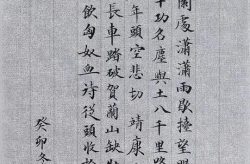 闌處瀟瀟雨歇擡望眼
十功名塵與土八千里路
年頭空悲切靖康
長車踏破賀蘭山缺壯
飲匈奴血待從頭收拾
癸卯冬